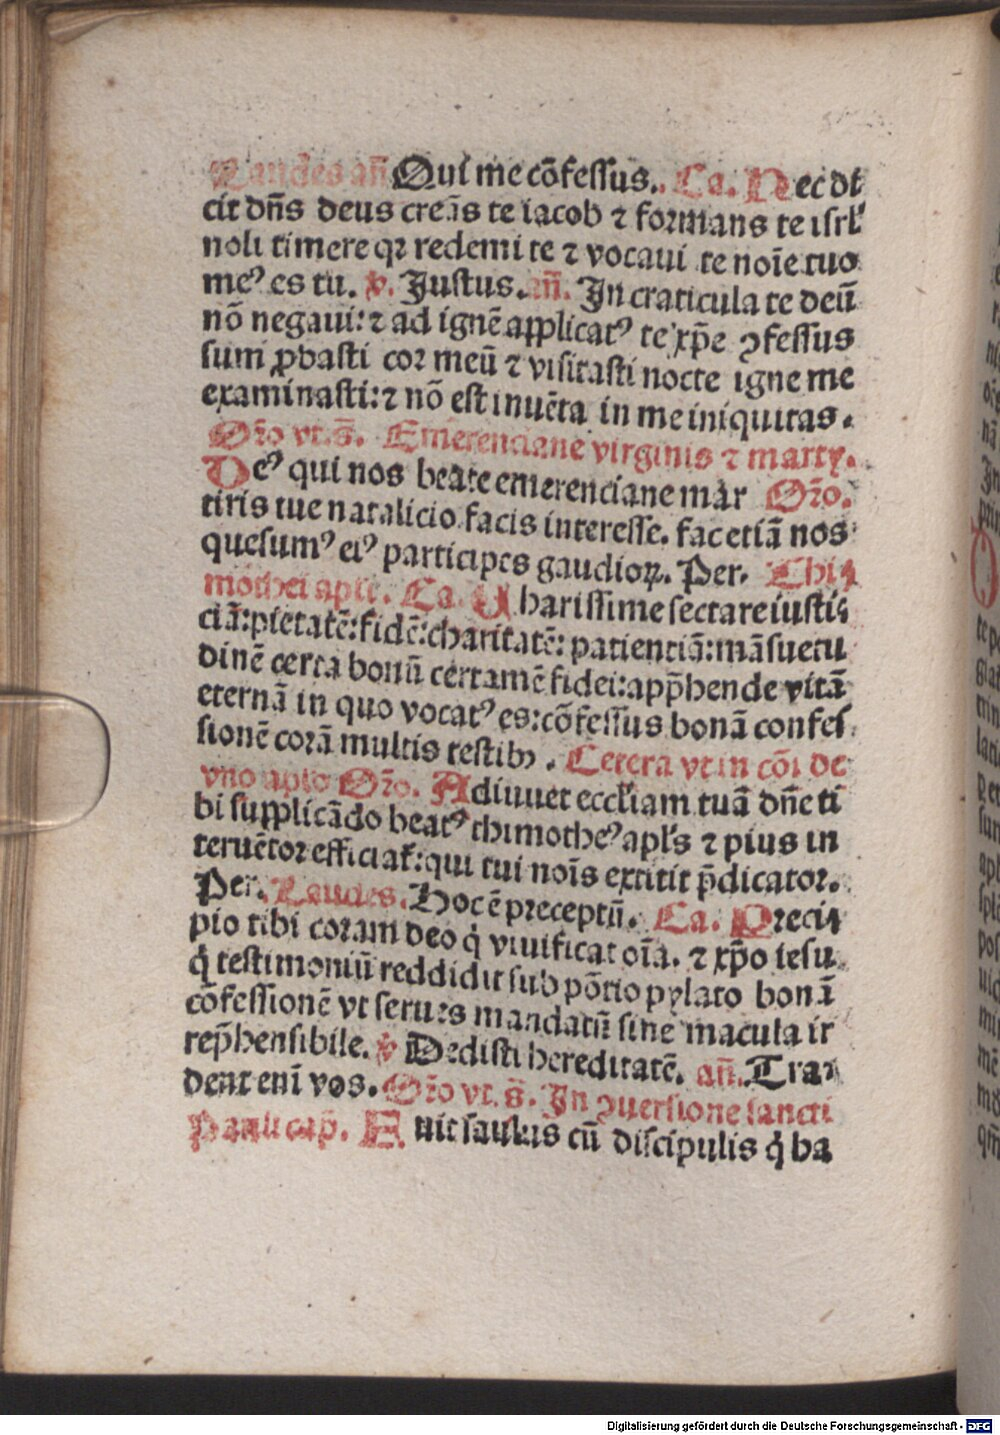 Laudes añ Qui me cõfessus. Ca. Nec di
cit dñs deus creãs te iacob ⁊ formans te isrl'
noli timere qꝛ redemi te ⁊ vocaui te noĩe tuo
meꝰ es tu. ℣. Justus. añ. In craticula te deũ
nõ negaui: ⁊ ad ignẽ applicatꝰ te xp̃e ꝯfessus
sum ꝓbasti cor meũ ⁊ visitasti nocte igne me
examinasti: ⁊ nõ est inuẽta in me iniquitas.
Oꝛ̃o vt. s̃. Emerenciane virginis ⁊ martꝝ.
Deꝰ qui nos beate emerenciane mar Oꝛ̃o.
tiris tue natalicio facis interesse. fac etiã nos
quesumꝰ eiꝰ participes gaudioꝝ. Per. Thi⸗
mothei apli. Ca. Charissime sectare iusti⸗
ciã: pietatẽ: fidẽ: charitatẽ: patientiã: mãsuetu
dinẽ certa bonũ certamẽ fidei: app̃hende vitã
eternã in quo vocatꝰ es: cõfessus bonã confes
sionẽ corã multis testibꝫ. Cetera vt in cõi de
vno aplo Oꝛ̃o. Adiuuet eccl'iam tuã dñe ti
bi supplicãdo beatꝰ thimotheꝰ apl's ⁊ pius in
teruẽtor efficiat̃: qui tui noĩs extitit p̃dicator.
Per. Laudes. Hoc ẽ preceptũ. Ca. Preci⸗
pio tibi coram deo q̇ viuificat oĩa. ⁊ xp̃o iesu
q̇ testimoniũ reddidit sub põtio pylato bonã
cõfessionẽ vt serues mandatũ sine macula ir
rep̃hensibile. ℣ Dedisti hereditatẽ. añ. Tra⸗
dent enĩ vos. Oꝛ̃o vt. s̃. In ꝯuersione sancti
Pauli cap̃. Euit saulus cũ discipulis q̇ ba
Digitalisierung gefördert durch die Deutsche Forschungsgemeinschaft - DFG